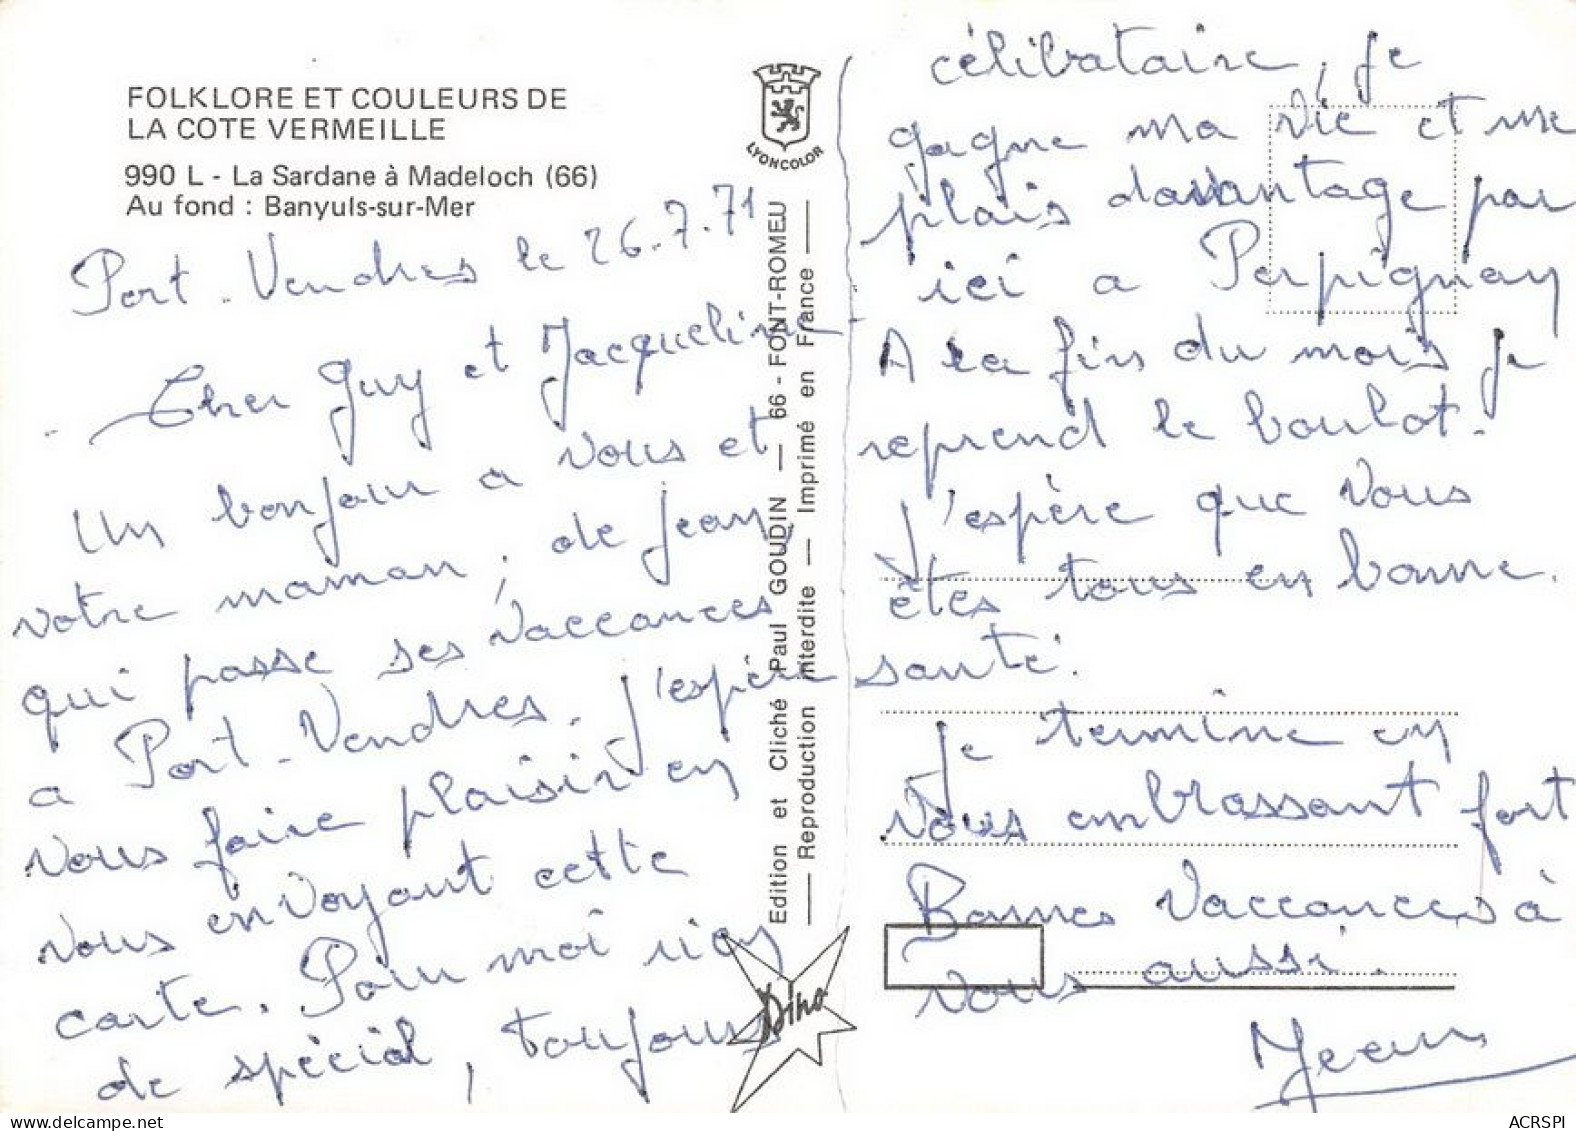 FOLKLORE ET COULEURS DE
LA COTE VERMEILLE
990 L - La Sardane à Madeloch (66)
Au fond : Banyuls-sur-Mer
Port-Vendres le 26.7.71
Cher Guy et Jacqueline
Un bonjour a vous et
votre maman, de Jean
qui passe ses vaccances
a Port-Vendres. J'espère
vous faire plaisir en
vous envoyant cette
carte. Pour moi rien
de spécial, toujours
LYONCOLOR
Edition et Cliché Paul GOUDIN — 66 - FONT-ROMEU
Reproduction interdite — Imprimé en France
Dino
célibataire, je
gagne ma vie et me
plais davantage par
ici a Perpignan
A la fin du mois je
reprend le boulot.
J'espère que vous
êtes tous en bonne
santé.
Je termine en
vous embrassant fort
Bonnes vaccances à
vous aussi.
Jean
ACRSPI